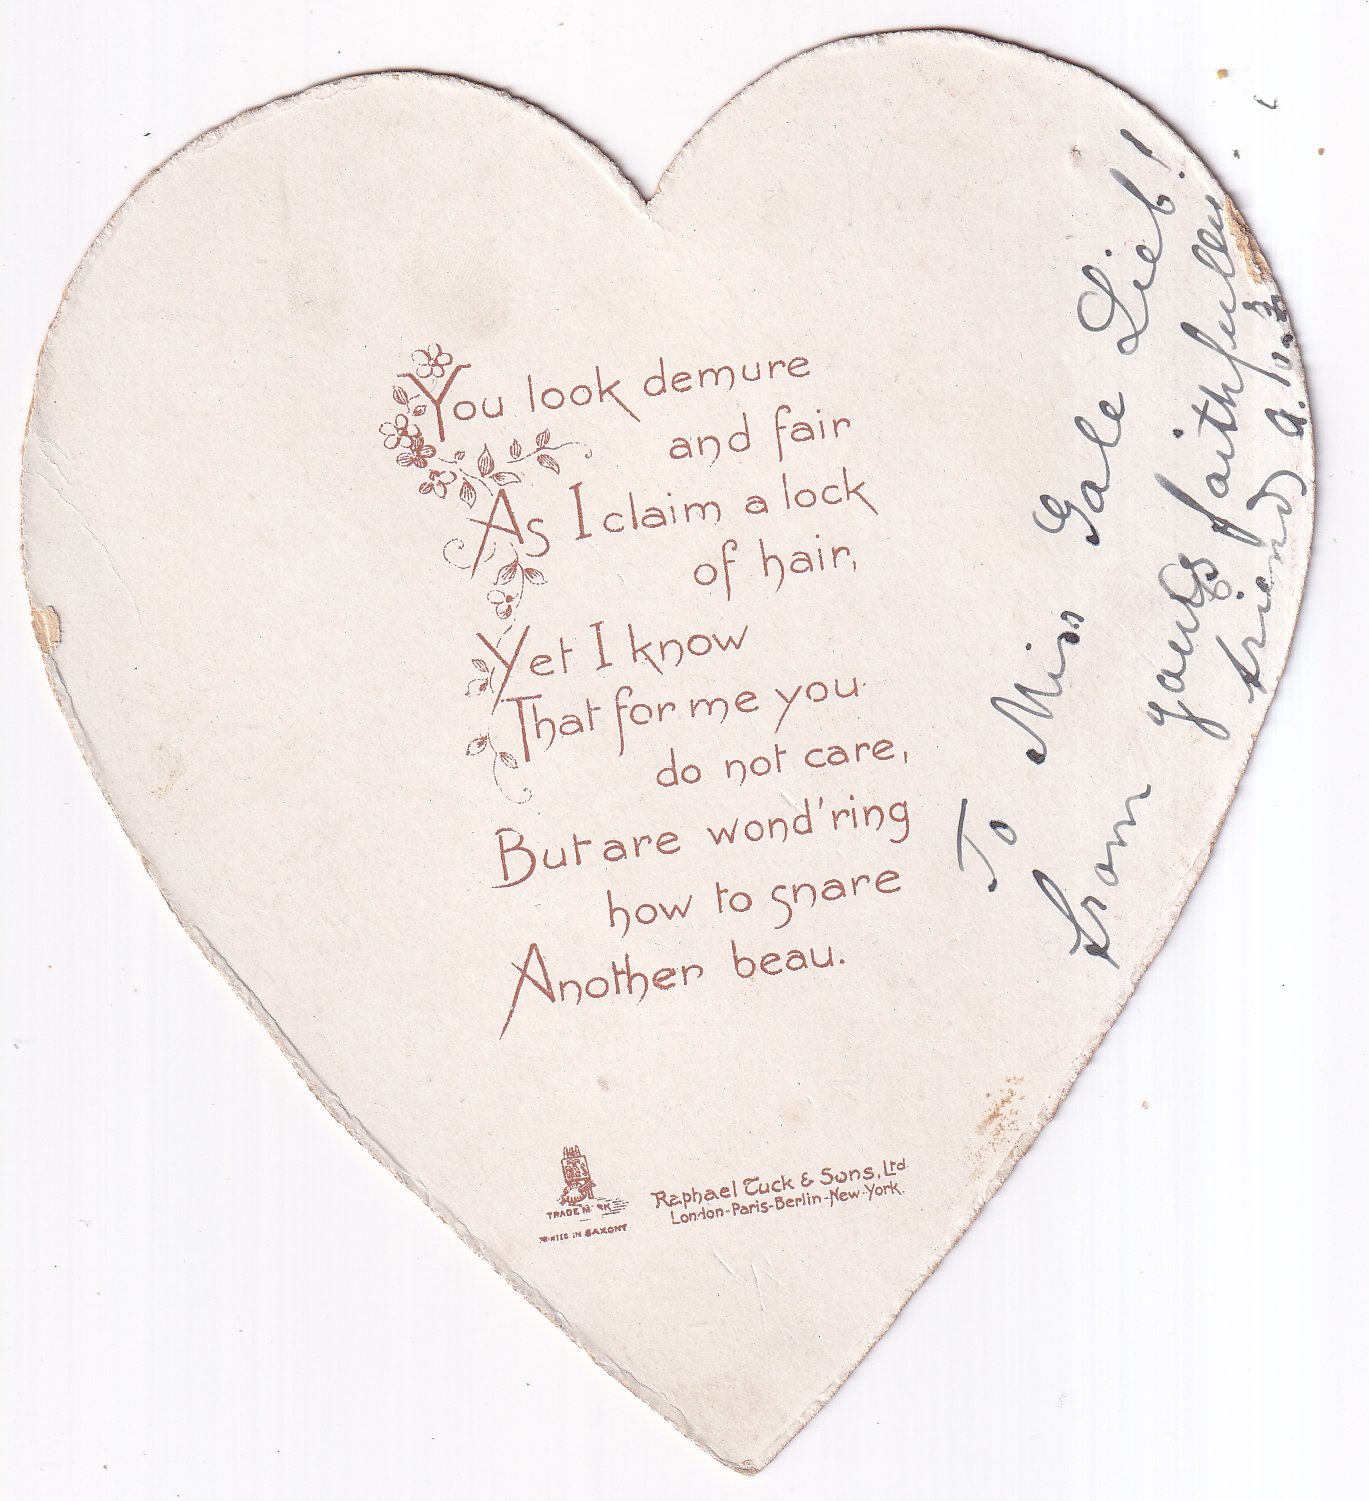 You look demure
and fair
As I claim a lock
of hair,
Yet I know
That for me you
do not care,
But are wond'ring
how to snare
Another beau.
TRADE MARK
PRINTED IN SAXONY
Raphael Tuck & Sons, Ltd
London-Paris-Berlin-New-York.
To Miss Gale Lieb!
From yours faithfully
friend